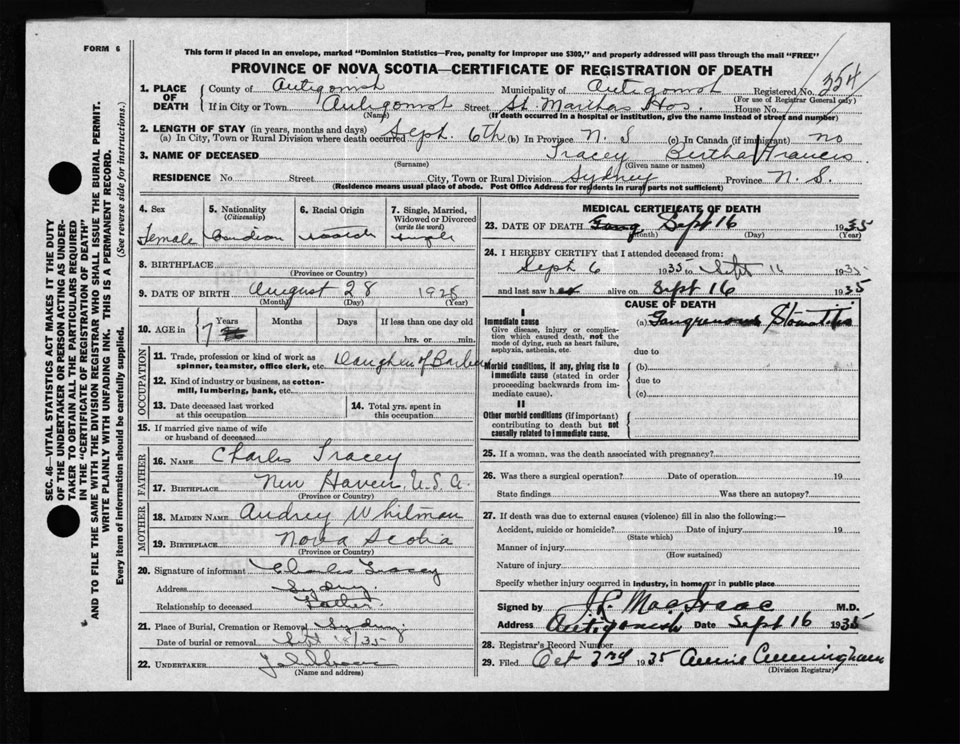 FORM 6
This form if placed in an envelope, marked "Dominion Statistics—Free, penalty for improper use $300," and properly addressed will pass through the mail "FREE"
PROVINCE OF NOVA SCOTIA—CERTIFICATE OF REGISTRATION OF DEATH
SEC. 46—VITAL STATISTICS ACT MAKES IT THE DUTY
OF THE UNDERTAKER OR PERSON ACTING AS UNDER-
TAKER TO OBTAIN ALL THE PARTICULARS REQUIRED
IN THE "CERTIFICATE OF REGISTRATION OF DEATH"
AND TO FILE THE SAME WITH THE DIVISION REGISTRAR WHO SHALL ISSUE THE BURIAL PERMIT.
WRITE PLAINLY WITH UNFADING INK. THIS IS A PERMANENT RECORD.
Every item of information should be carefully supplied. (See reverse side for instructions.)
1. PLACE OF DEATH
County of Antigonish Municipality of Antigonish Registered No. 354
(For use of Registrar General only)
If in City or Town Antigonish Street St. Marthas Hos. House No.
(Name) (If death occurred in a hospital or institution, give the name instead of street and number)
2. LENGTH OF STAY (in years, months and days)
(a) In City, Town or Rural Division where death occurred Sept. 6th (b) In Province N. S (c) In Canada (if immigrant) no
3. NAME OF DECEASED Tracey Bertha Francis
(Surname) (Given name or names)
RESIDENCE No. Street City, Town or Rural Division Sydney Province N. S.
(Residence means usual place of abode. Post Office Address for residents in rural parts not sufficient)
4. Sex Female
5. Nationality (Citizenship)
6. Racial Origin
7. Single, Married, Widowed or Divorced (write the word) single
8. BIRTHPLACE
(Province or Country)
9. DATE OF BIRTH August 28 1928
(Month) (Day) (Year)
10. AGE in 7 Years Months Days If less than one day old
hrs. or min.
OCCUPATION
11. Trade, profession or kind of work as spinner, teamster, office clerk, etc. Daughter of Barber
12. Kind of industry or business, as cotton-mill, lumbering, bank, etc.
13. Date deceased last worked at this occupation
14. Total yrs. spent in this occupation
15. If married give name of wife or husband of deceased
FATHER
16. NAME Charles Tracey
17. BIRTHPLACE New Haven, U.S.A.
(Province or Country)
MOTHER
18. MAIDEN NAME Audrey Whitman
19. BIRTHPLACE Nova Scotia
(Province or Country)
20. Signature of informant Charles Tracey
Address Sydney
Relationship to deceased Father
21. Place of Burial, Cremation or Removal Sydney
Date of burial or removal Sept 18/35
22. UNDERTAKER
(Name and address)
MEDICAL CERTIFICATE OF DEATH
23. DATE OF DEATH Sept 16 1935
(Month) (Day) (Year)
24. I HEREBY CERTIFY that I attended deceased from:
Sept 6 1935 to Sept 16 1935
and last saw her alive on Sept 16 1935
CAUSE OF DEATH
I
Immediate cause (a) Gangrenous Stomatitis
Give disease, injury or complication which caused death, not the mode of dying, such as heart failure, asphyxia, asthenia, etc.
due to
Morbid conditions, if any, giving rise to immediate cause (stated in order proceeding backwards from immediate cause).
(b)
due to
(c)
II
Other morbid conditions (if important) contributing to death but not causally related to immediate cause.
25. If a woman, was the death associated with pregnancy?
26. Was there a surgical operation? Date of operation 19
State findings Was there an autopsy?
27. If death was due to external causes (violence) fill in also the following:—
Accident, suicide or homicide? Date of injury 19
(State which)
Manner of injury
(How sustained)
Nature of injury
Specify whether injury occurred in industry, in home, or in public place
Signed by J. L. MacIsaac M.D.
Address Antigonish Date Sept 16 1935
28. Registrar's Record Number
29. Filed Oct 2nd 1935 Annie Cunningham
(Division Registrar)